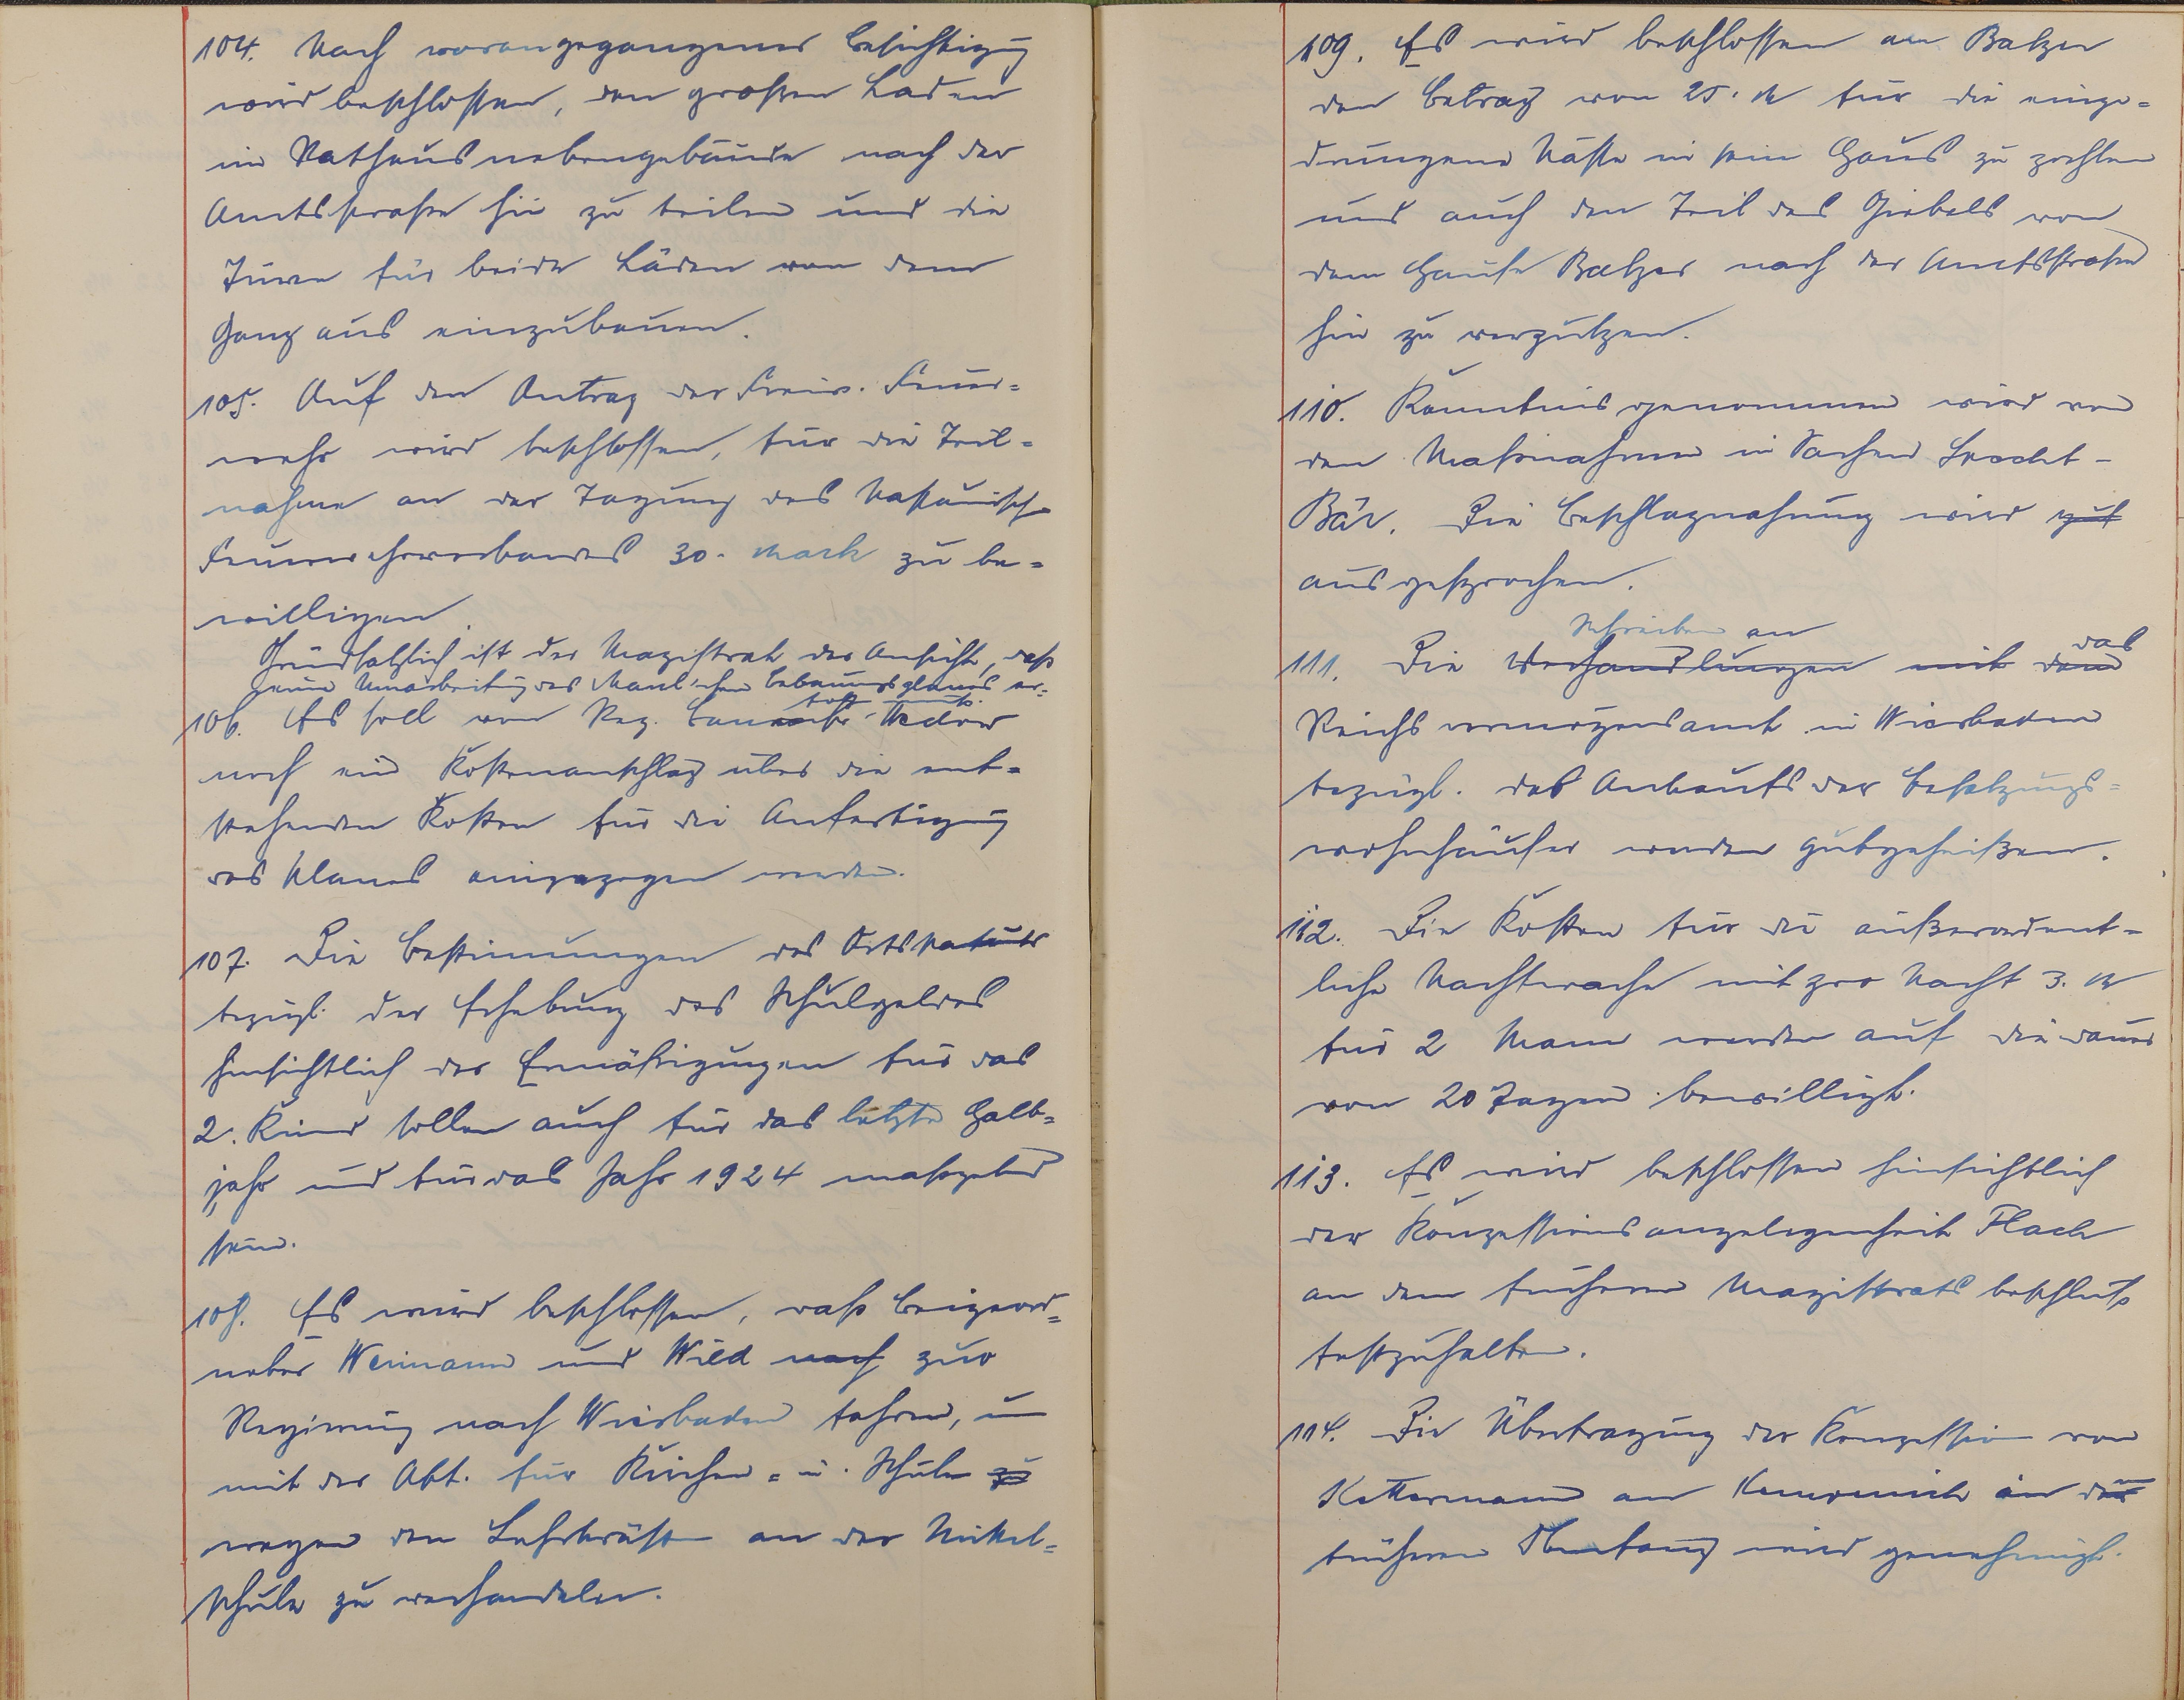 104. Nach vorangegangener Besichtigung
wird beschlossen, den großen Laden
im Rathausnebengebäude nach der
Amtsstraße hin zu teilen und die
Türen für beide Läden von dem
Gang aus einzubauen.
105. Auf den Antrag der Freiw. Feuer-
wehr wird beschlossen, für die Teil-
nahme an der Tagung des Nassauisch
Feuerwehrverbandes 30.- Mark zu be-
willigen.
Grundsätzlich ist der Magistrat der Ansicht, daß
eine Umarbeitung des Bebauungsplanes er-
folgen muß.
106. Es soll von Reg.
noch ein Kostenanschlag über die ent-
stehenden Kosten für die Anfertigung
des Planes eingezogen werden.
107. Die Bestimmungen des Ortsstatuts
bezügl. der Erhebung des Schulgeldes
hinsichtlich der Ermäßigungen für das
2. Kind sollen auch für das letzte Halb-
jahr und für das Jahr 1924 maßgebend
sein.
108. Es wird beschlossen, daß Beigeord-
neter Weimann und Wild nach zur
Regierung nach Wiesbaden fahren, um
mit der Abt. für Kirchen- u. Schulen zu
wegen den Lehrkräften an der Mittel-
schule zu verhandeln.
109. Es wird beschlossen an Balzer
den Betrag von 25.- M für die einge-
drungene Nässe in sein Haus zu zahlen
und auch den Teil des Giebels von
dem Hause Balzer nach der Amtsstraße
hin zu verputzen.
110. Kenntnis genommen wird von
den Maßnahmen in Sachen Specht-
Bär. Die Beschlagnahmung wird gut
ausgesprochen.
Schreiben an das
111. Die Verhandlungen mit dem
Reichsvermögensamt in Wiesbaden
bezügl. des Ankaufs der Besatzungs-
wohnhäuser werden gutgeheißen.
112. Die Kosten für die außerordent-
liche Nachtwache mit pro Nacht 3.- M
für 2 Mann werden auf die Dauer
von 20 Tagen bewilligt.
113. Es wird beschlossen hinsichtlich
der Konzessionsangelegenheit Flach
an dem früheren Magistratsbeschluß
festzuhalten.
114. Die Übertragung der Konzession von
Kettermann an in dem
früheren Umfang wird genehmigt.